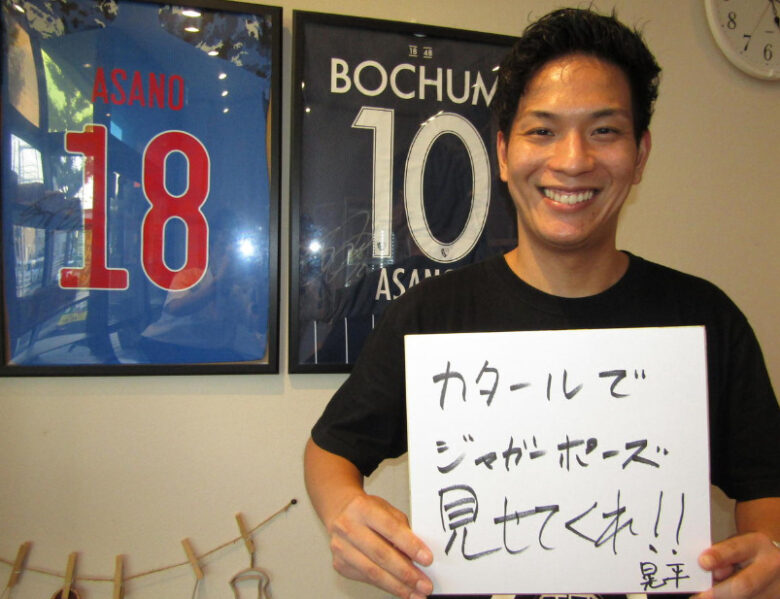 ASANO
18
BOCHUM
10
ASANO
カタールで
ジャガーポーズ
見せてくれ!!
晃平